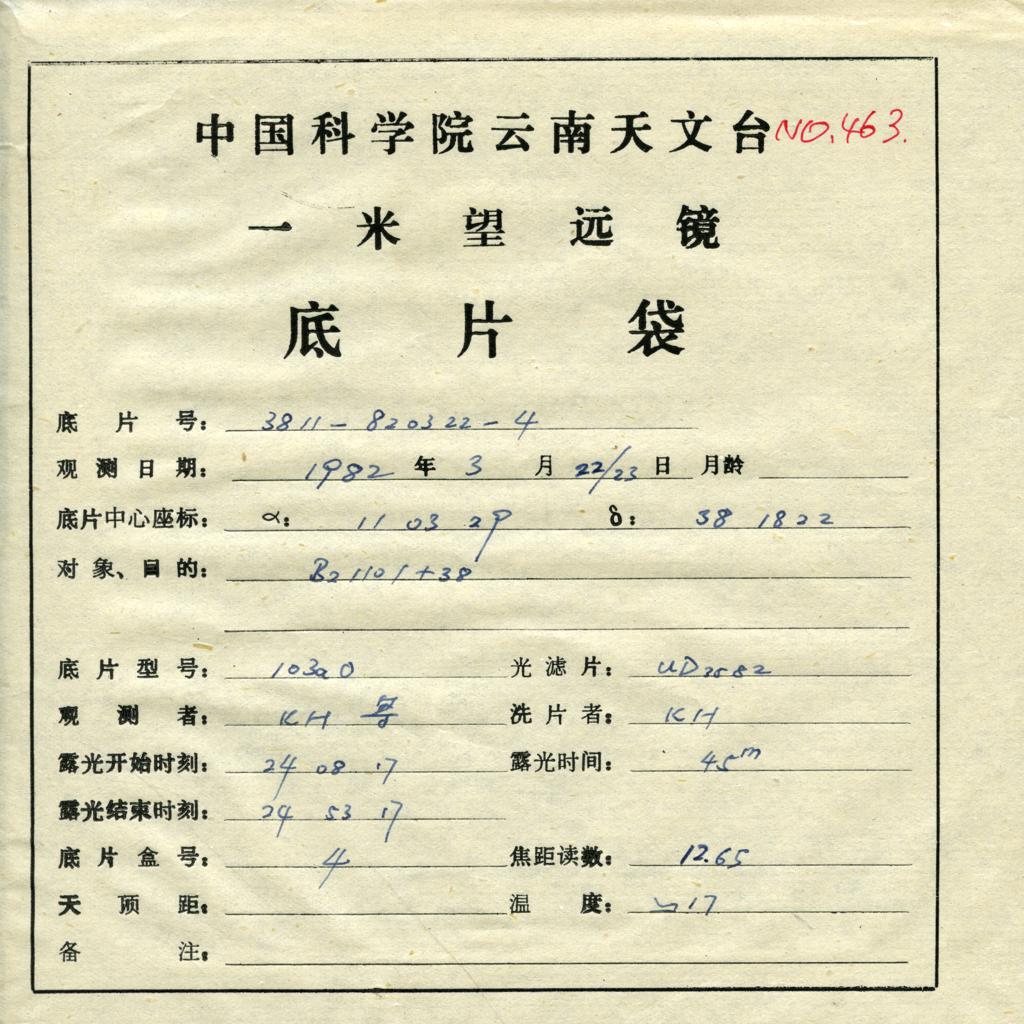 中国科学院云南天文台 NO.463.
一米望远镜
底片袋
底片号: 3811-820322-4
观测日期: 1982年3月22/23日 月龄
底片中心座标: α: 11 03 29 δ: 38 18 22
对象、目的: B2 1101+38
底片型号: 103a O 光滤片:
观测者: KH 洗片者: KH
露光开始时刻: 24 08 17 露光时间: 45m
露光结束时刻: 24 53 17
底片盒号: 4 焦距读数: 12.65
天顶距: 温度: 17
备注: